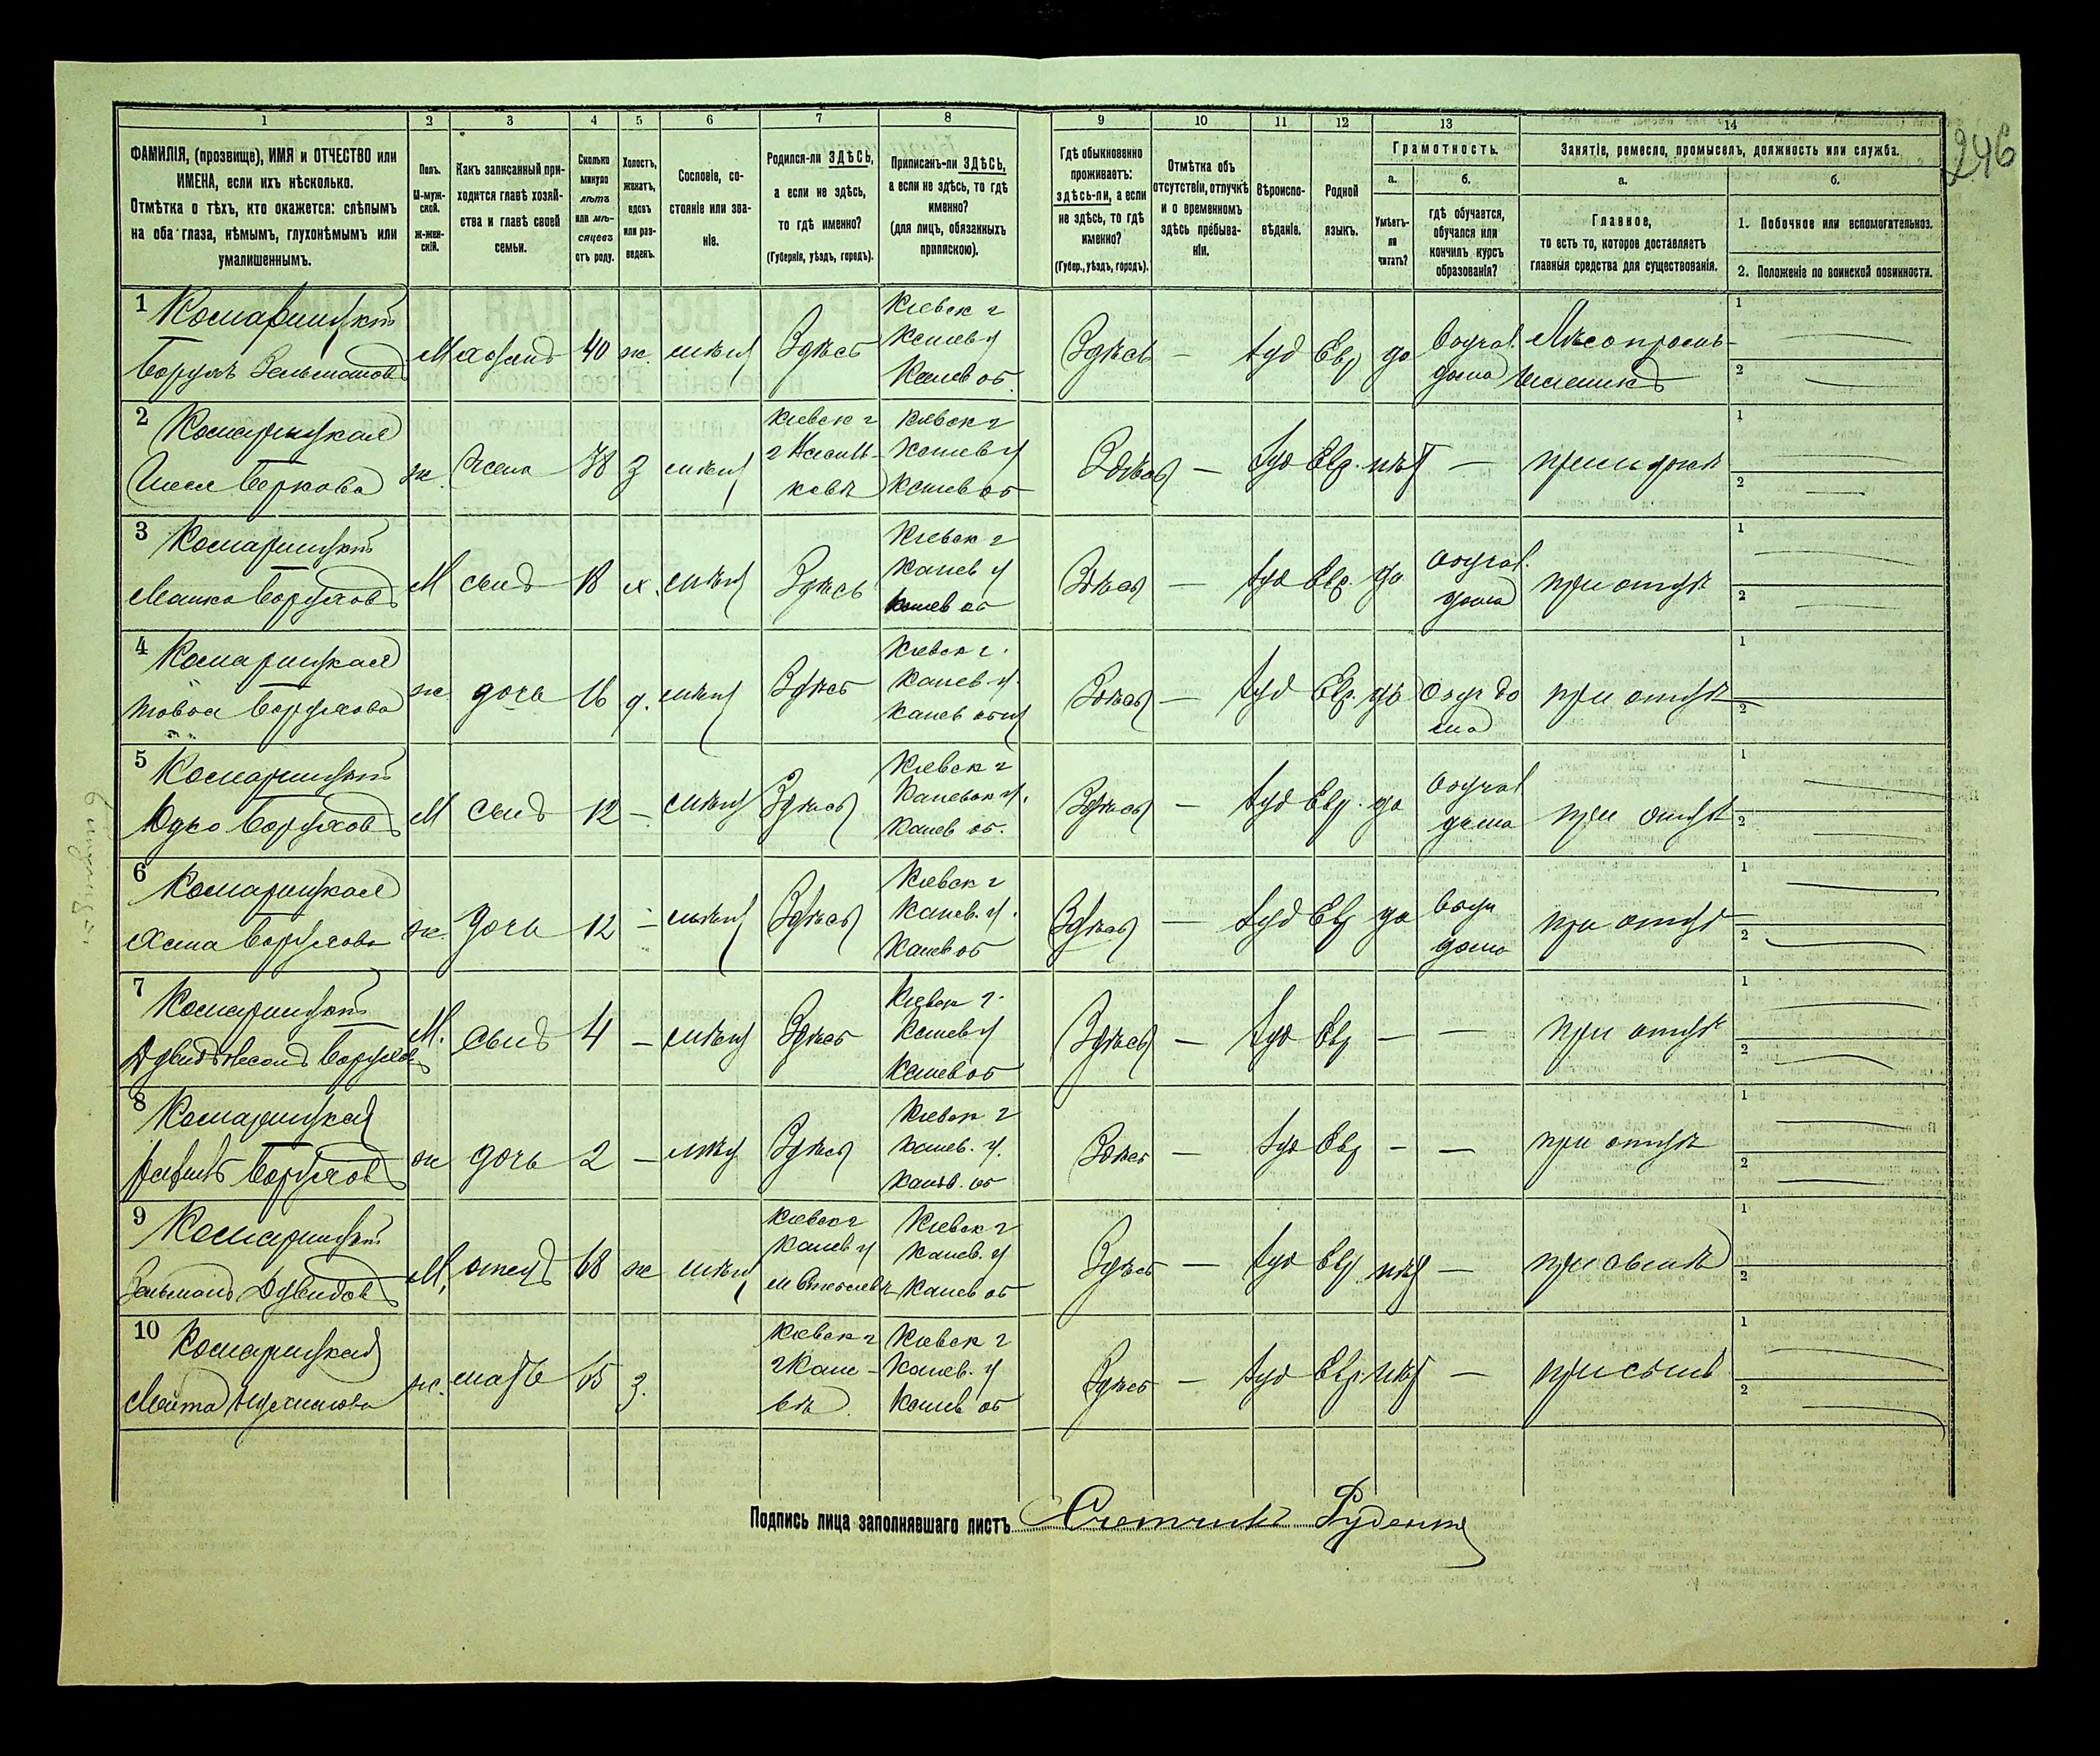 246
1
2
3
4
5
6
7
8
9
10
11
12
13
14
ФАМИЛІЯ, (прозвище), ИМЯ и ОТЧЕСТВО или
ИМЕНА, если ихъ нѣсколько.
Отмѣтка о тѣхъ, кто окажется: слѣпымъ
на оба глаза, нѣмымъ, глухонѣмымъ или
умалишеннымъ.
Полъ.
М-муж-
ской.
Ж-жен-
скій.
Какъ записанный при-
ходится главѣ хозяй-
ства и главѣ своей
семьи.
Сколько
минуло
лѣтъ
или мѣ-
сяцевъ
отъ роду.
Холостъ,
женатъ,
вдовъ
или раз-
веденъ.
Сословіе, со-
стояніе или зва-
ніе.
Родился-ли ЗДѢСЬ,
а если не здѣсь,
то гдѣ именно?
(Губернія, уѣздъ, городъ).
Приписанъ-ли ЗДѢСЬ,
а если не здѣсь, то гдѣ
именно?
(для лицъ, обязанныхъ
припискою).
Гдѣ обыкновенно
проживаетъ:
здѣсь-ли, а если
не здѣсь, то гдѣ
именно?
(Губер., уѣздъ, городъ).
Отмѣтка объ
отсутствіи, отлучкѣ
и о временномъ
здѣсь пребыва-
ніи.
Вѣроиспо-
вѣданіе.
Родной
языкъ.
Грамотность.
а.
Умѣетъ-
ли
читать?
б.
гдѣ обучается,
обучался или
кончилъ курсъ
образованія?
Занятіе, ремесло, промыселъ, должность или служба.
а.
Главное,
то есть то, которое доставляетъ
главныя средства для существованія.
б.
1. Побочное или вспомогательное.
2. Положеніе по воинской повинности.
1 Комарицкій
Борухъ Зельманов
М хозяинъ 40 ж. мѣщ Здѣсь
Кіевск г
Канев у
Канев об.
Здѣсь — Іуд Евр да
Обучал.
дома
1
2
2 Комарицкая
Беркова
ж. жена 38 з мѣщ
Кіевск г
Кіевск г
Канев у
Канев об
Здѣсь — Іуд Евр. нѣт —
1
2
3 Комарицкій
Мошко Боруховъ
М сынъ 18 х. мѣщ Здѣсь
Кіевск г
Канев у
Канев об
Здѣсь — Іуд Евр да
Обучал.
дома
при отцѣ
1
2
4 Комарицкая
Товба Борухова
ж дочь 16 д. мѣщ Здѣсь
Кіевск г.
Канев у.
Канев общ
Здѣсь — Іуд Евр. да
Обуч до
ма
при отцѣ
1
2
5 Комарицкій
Юдко Боруховъ
М сынъ 12 — мѣщ Здѣсь
Кіевск г
Каневск у.
Канев об.
Здѣсь — Іуд Евр. да
Обучал
дома
при отцѣ
1
2
6 Комарицкая
Хана Борухова
ж. дочь 12 — мѣщ Здѣсь
Кіевск г
Канев. у.
Канев об
Здѣсь — Іуд Евр да
Обуч
дома
при отцѣ
1
2
7 Комарицкій
М. сынъ 4 — мѣщ Здѣсь
Кіевск г.
Канев у
Канев об
Здѣсь — Іуд Евр — —
при отцѣ
1
2
8 Комарицкая
ж дочь 2 — мѣщ Здѣсь
Кіевск г
Канев. у.
Канев. об
Здѣсь — Іуд Евр — —
при отцѣ
1
2
9 Комарицкій
Зельманъ Дувидовъ
М. отецъ 68 ж мѣщ
Кіевск г
Канев у
Кіевск г
Канев. у
Канев об
Здѣсь — Іуд Евр нѣт —
при сынѣ
1
2
10 Комарицкая
ж. мать 65 з.
Кіевск г
г Кане-
вѣ
Кіевск г
Канев. у
Канев об
Здѣсь — Іуд Евр. нѣт —
при сынѣ
1
2
Подпись лица заполнявшаго листъ Счетчикъ Руденко